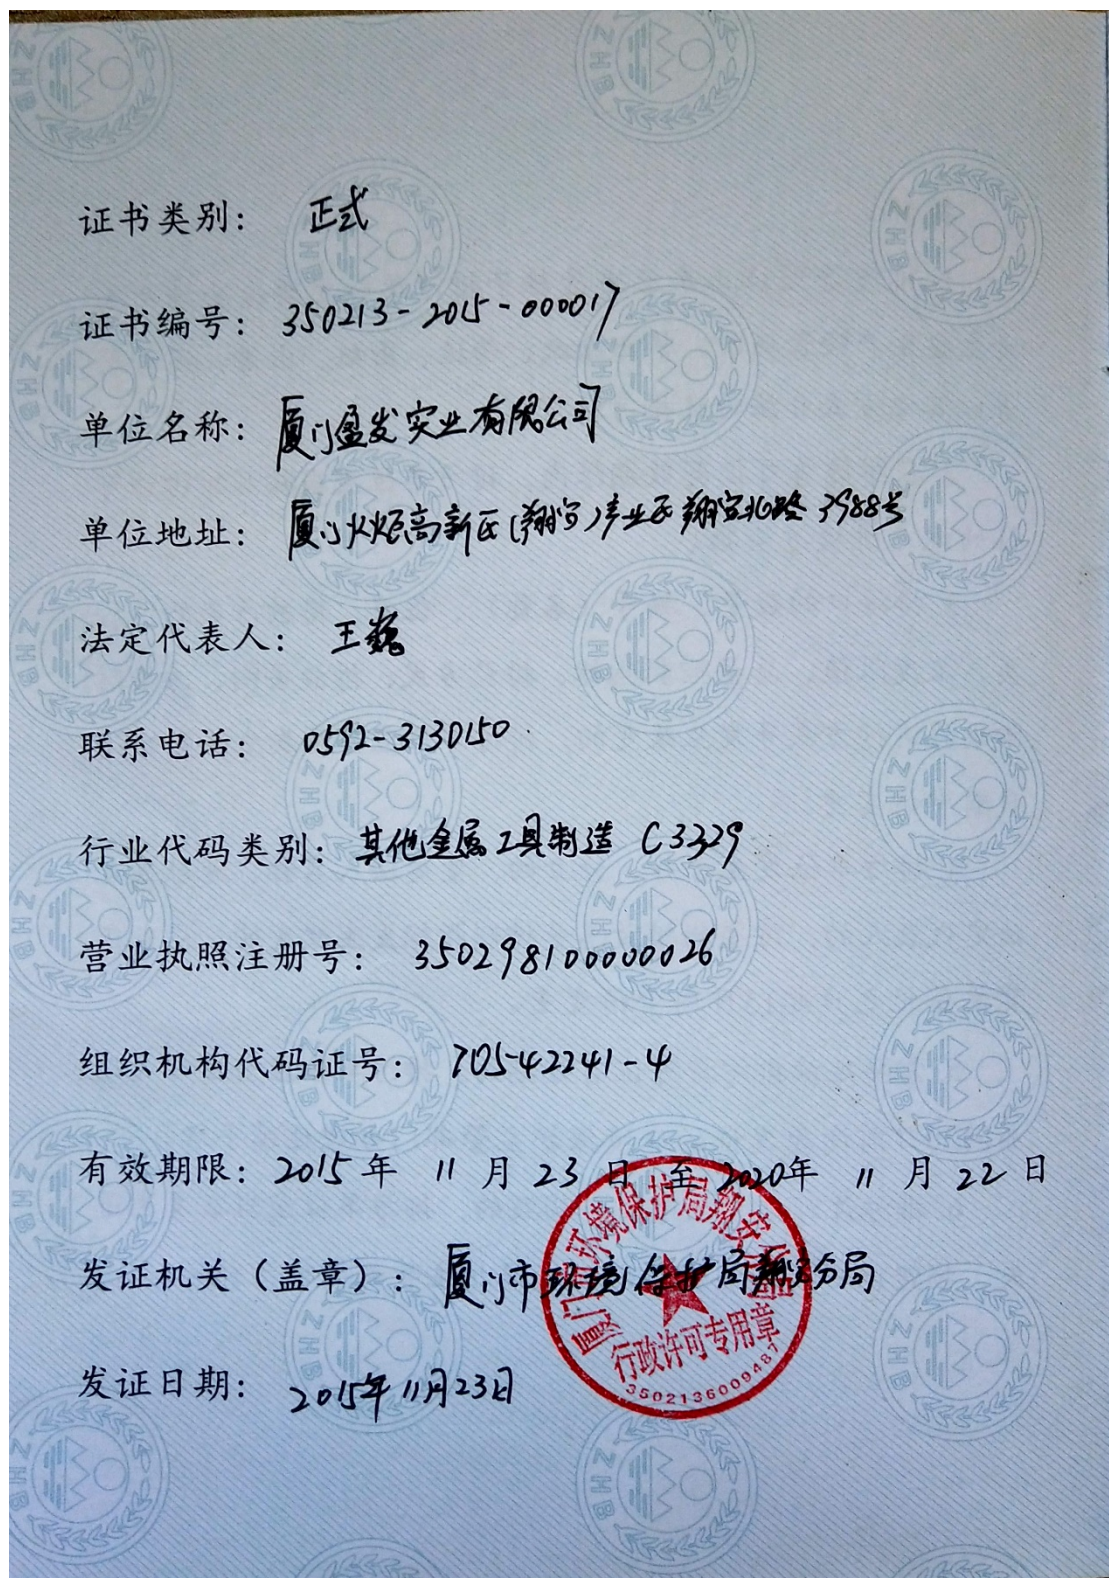 证书类别： 正式
证书编号： 350213-2015-000017
单位名称： 厦门盈发实业有限公司
单位地址： 厦门火炬高新区(翔安)产业区翔安北路3988号
法定代表人： 王巍
联系电话： 0592-3130150
行业代码类别： 其他金属工具制造 C3329
营业执照注册号： 350298100000026
组织机构代码证号： 70542241-4
有效期限： 2015年 11 月 23 日 至 2020年 11 月 22 日
发证机关（盖章）： 厦门市环境保护局翔安分局
发证日期： 2015年11月23日
厦门市环境保护局翔安分局
行政许可专用章
3502136009487
ZHB